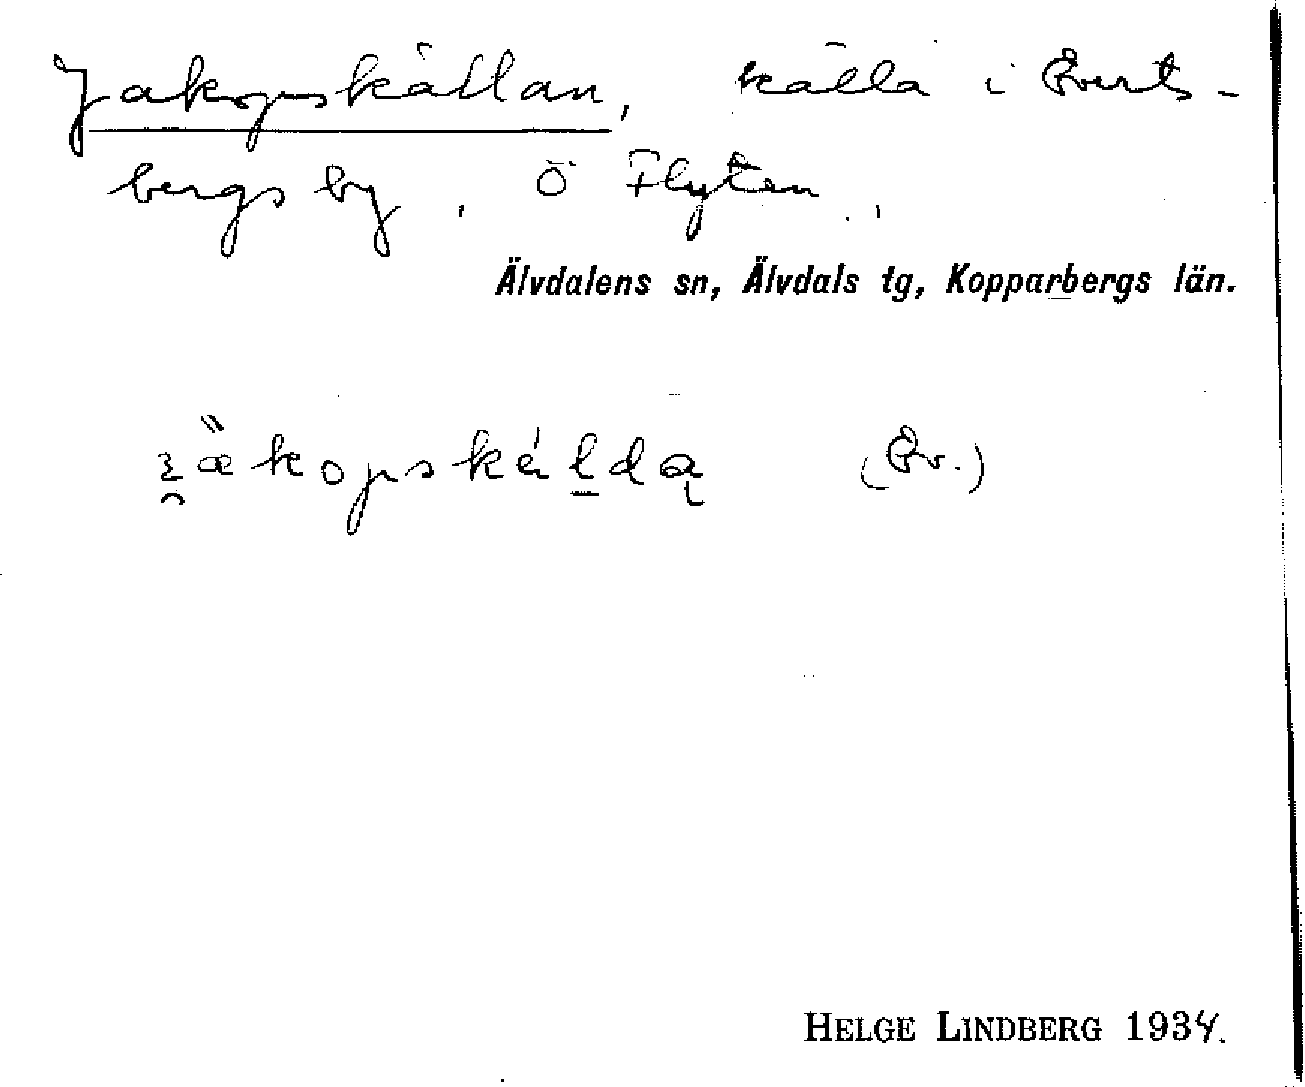 Jakopskällan, källa i Everts-
bergs by, Ö Flyten,
Älvdalens sn, Älvdals tg, Kopparbergs län.
(Ev.)
HELGE LINDBERG 1934.